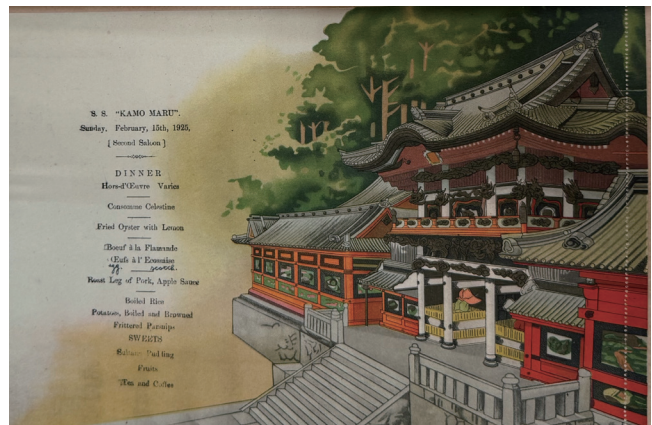 S. S. "KAMO MARU".
Sunday, February, 15th, 1925,
[ Second Saloon ]
DINNER
Hors-d'Œuvre Varies
Consomme Celestine
Fried Oyster with Lemon
Boeuf à la Flamande
Œufs à l' Ecossaise
Egg scotch.
Roast Leg of Pork, Apple Sauce
Boiled Rice
Potatoes, Boiled and Browned
Frittured Parsnips
SWEETS
Pudding
Fruits
Tea and Coffee